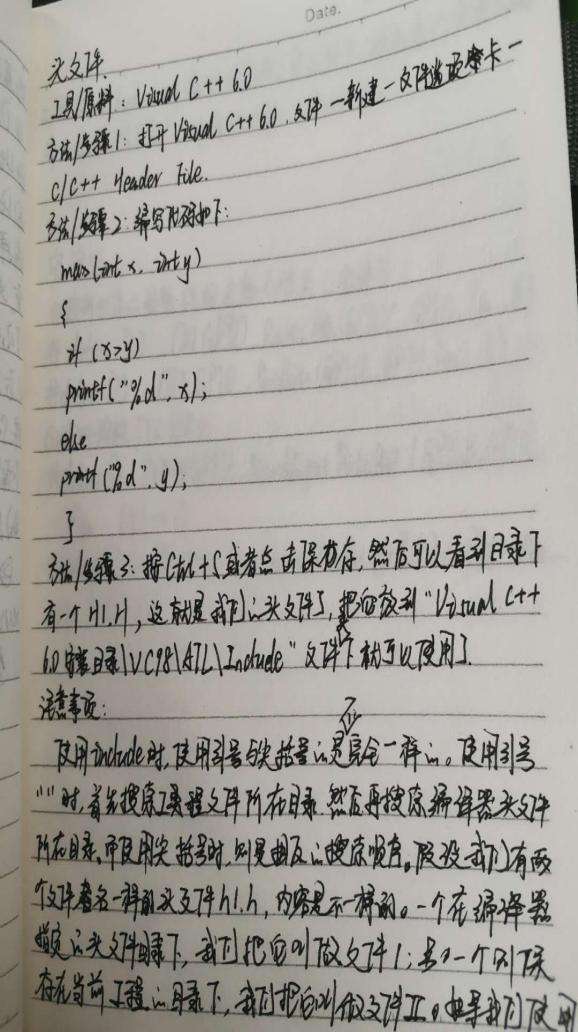 Date.
头文件.
工具/原料: Visual C++ 6.0
方法/步骤1: 打开 Visual C++ 6.0. 文件 — 新建 — 文件选项卡 —
C/C++ Header File.
方法/步骤2: 编写代码如下:
max(int x, int y)
{
if (x>y)
printf("%d", x);
else
printf("%d", y);
}
方法/步骤3: 按Ctrl+S或者点击保存, 然后可以看到目录下
有一个H1.H, 这就是我们的头文件了, 把它放到"Visual C++
6.0安装目录\VC98\ATL\Include"文件下就可以使用了.
注意事项:
不
使用include时, 使用引号与尖括号的是完全一样的。使用引号
""时, 首先搜索工程文件所在目录, 然后再搜索编译器头文件
所在目录, 而使用尖括号时, 则是相反的搜索顺序。假设我们有两
个文件名一样的头文件h1.h, 内容是不一样的。一个在编译器
指定的头文件目录下, 我们把它叫做文件1; 另一个则
存在当前工程的目录下, 我们把它叫做文件II。如果我们使用